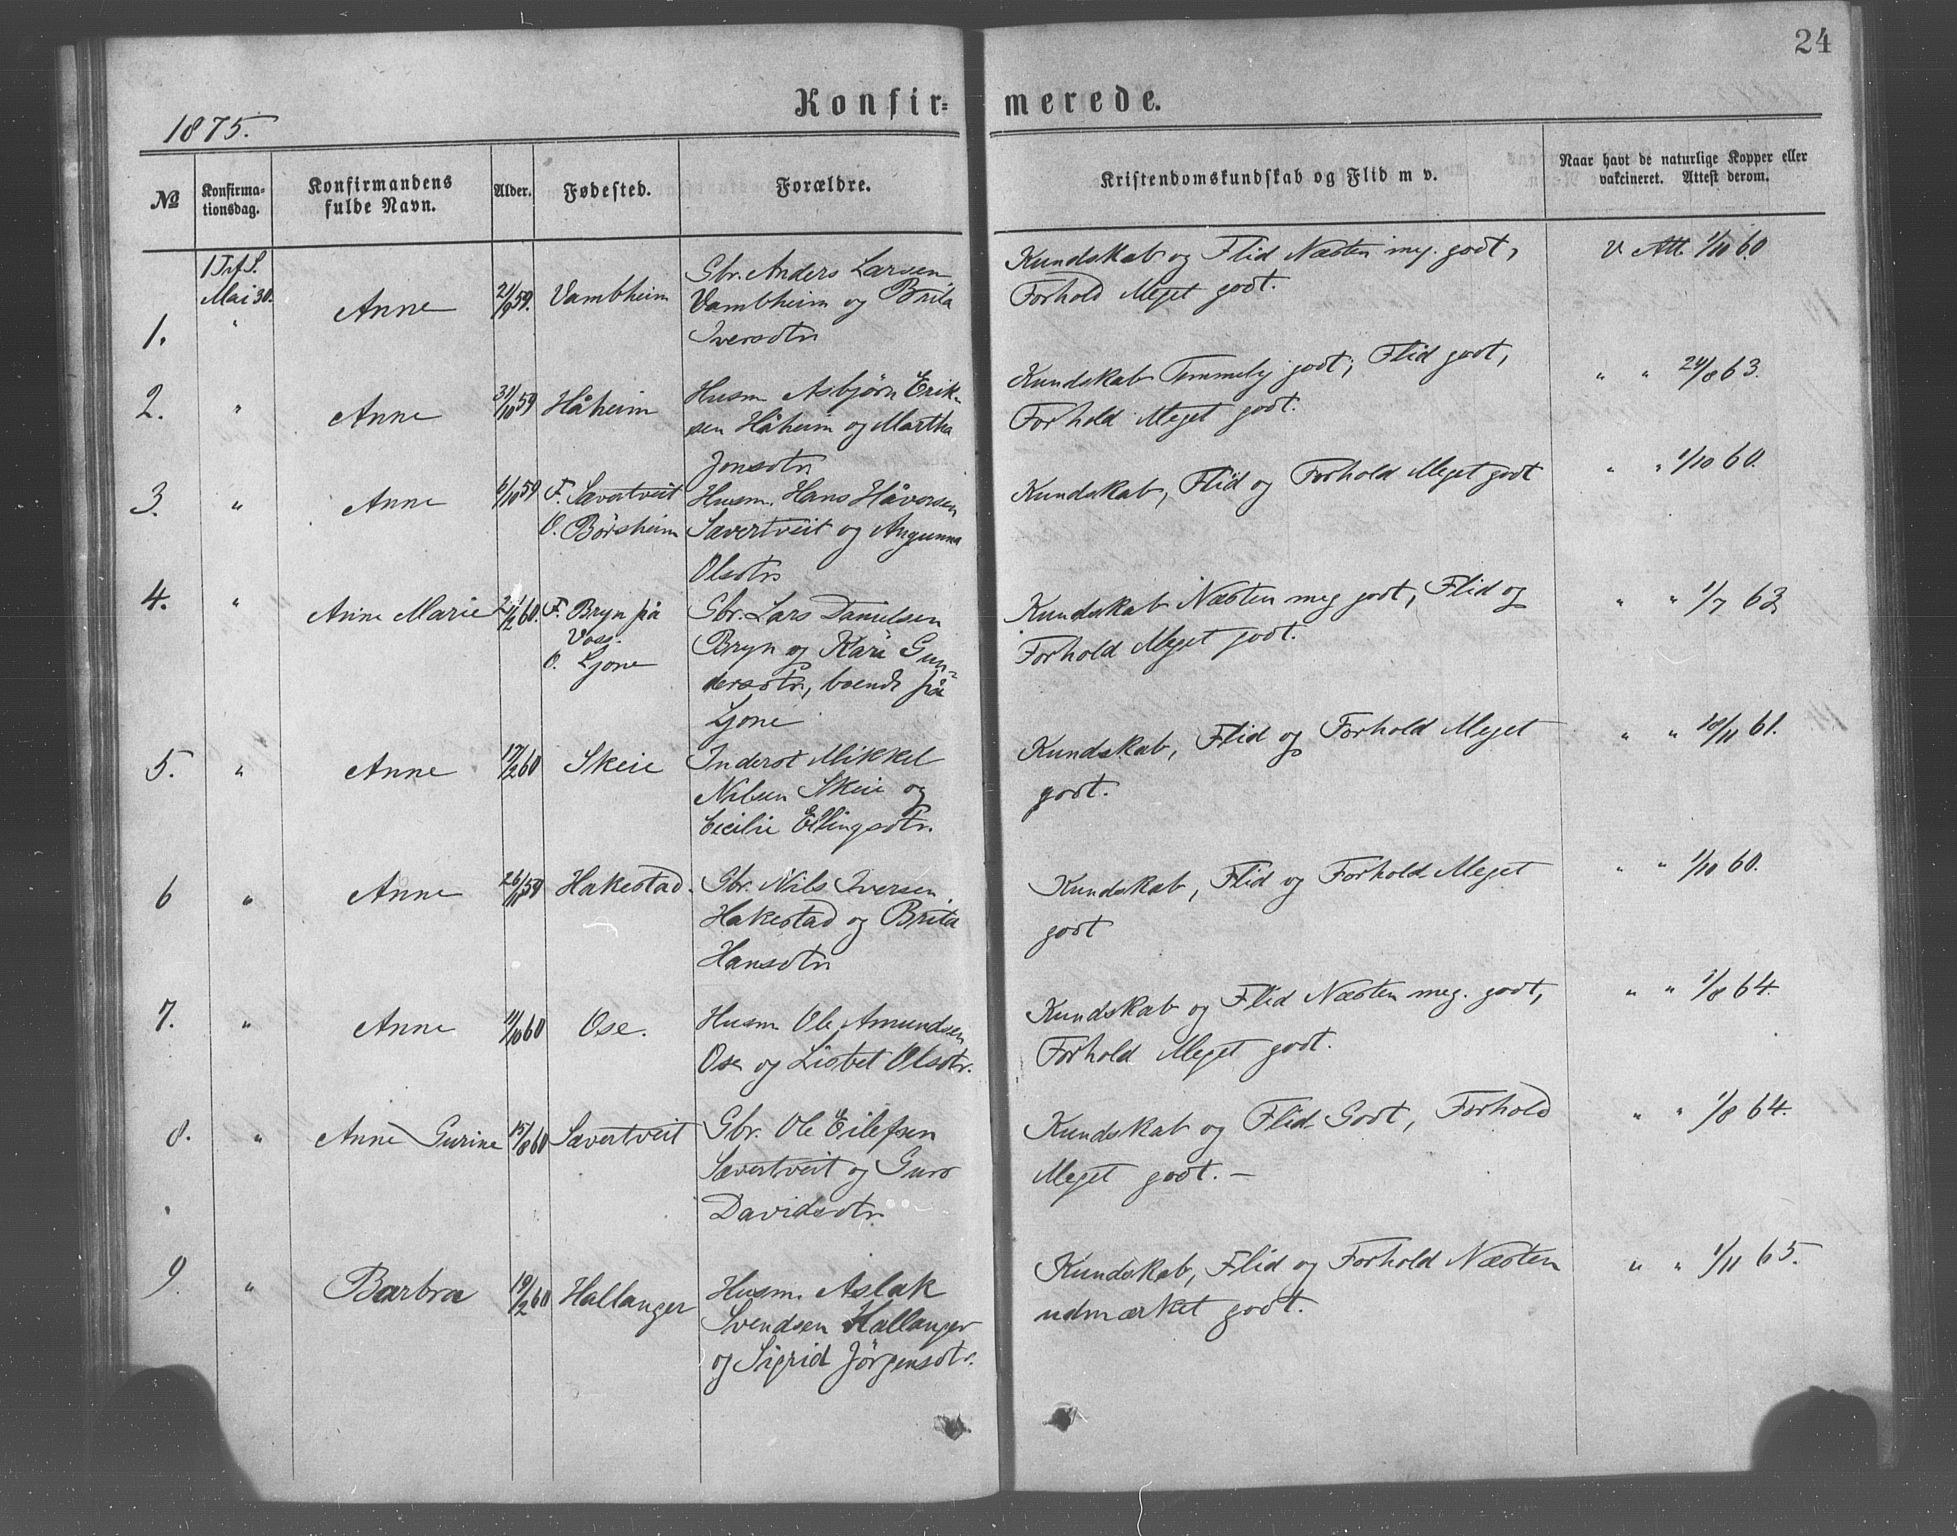 24
Konfir- merede.
1875.
No Konfirma- tionsdag. Konfirmandens fulde Navn. Alder. Fødested. Forældre. Kristendomskundskab og Flid m v. Naar havt de naturlige Kopper eller vakcineret. Attest derom.
1 Trf S.
Mai 30.
1. " Anne 59. Vambheim Gbr. Anders Larsen
Vambheim og Brita
Iversdtr
Kundskab og Flid Næsten meg. godt,
Forhold Meget godt.
V. Att. 1/10 60.
2. " Anne 31/10 59 Håheim Husm Asbjørn Erik-
sen Håheim og Martha
Jonsdtr
Kundskab Temmelig godt; Flid godt,
Forhold Meget godt.
" " 24/8 63.
3. " Anne 6/10 59 F. Sævertveit
O. Børsheim
Husm. Hans Håversen
Sævertveit og Angunna
Olsdtr
Kundskab, Flid og Forhold Meget godt
" " 1/10 60.
4. " Anne Marie 60. F. Bryn på
Voss.
O. Ljone
Gbr. Lars Danielsen
Bryn og Kari Gun-
dersdtr, boende på
Ljone
Kundskab Næsten meg godt, Flid og
Forhold Meget godt.
" " 1/7 63
5. " Anne 17/2 60 Skeie Inderst Mikkel
Nilsen Skeie og
Cecilie Ellingsdtr.
Kundskab, Flid og Forhold Meget
godt.
" " 18/11 61.
6 " Anne 26/11 59 Hakestad. Gbr. Nils Iversen
Hakestad og Brita
Hansdtr
Kundskab, Flid og Forhold Meget
godt
" " 1/10 60.
7. " Anne 11/10 60 Ose. Husm Ole Amundsen
Ose og Lisbet Olsdtr.
Kundskab og Flid Næsten meg. godt,
Forhold Meget godt.
" " 1/8 64.
8. " Anne Gurine 15/8 60 Sævertveit Gbr. Ole Eilefsen
Sævertveit og Guro
Davidsdtr.
Kundskab og Flid Godt, Forhold
Meget godt. –
" " 1/8 64.
9. " Barbra 19/2 60 Hallanger Husm. Aslak
Svendsen Hallanger
og Sigrid Jørgensdtr.
Kundskab, Flid og Forhold Næsten
udmærket godt.
" " 1/11 65.